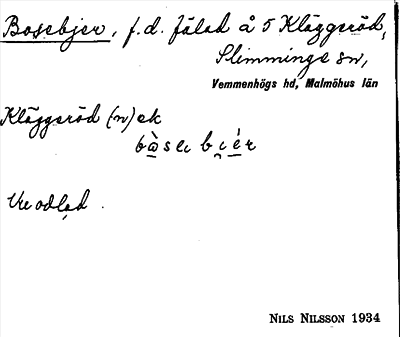 Bosebjer, f.d. fälad å 5 Kläggeröd,
Slimminge sn,
Vemmenhögs hd, Malmöhus län
Kläggeröd (n) ek
Uteodlad.
NILS NILSSON 1934